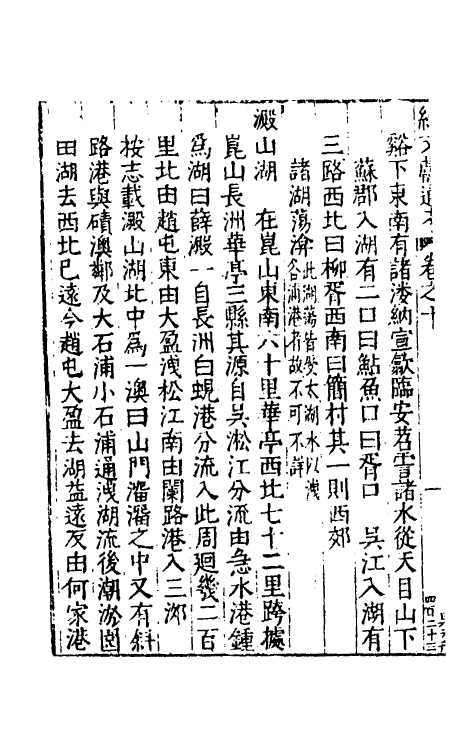 谿下東南有諸溇納宣歙臨安苕霅諸水從天目山下
蘇郡入湖有二口曰鮎魚口曰胥口　吳江入湖有
三路西北曰柳胥西南曰簡村其一則西郊
諸湖蕩淪此湖蕩皆受太湖水以洩
各浦港者故不可不詳
澱山湖　在崑山東南六十里華亭西北七十二里跨據
崑山長洲華亭三縣其源自吳淞江分流由急水港鍾
爲湖曰薛澱一自長洲白蜆港分流入此周迴幾二百
里北由趙屯東由大盈洩松江南由闌路港入三泖
按志載澱山湖北中爲一澳曰山門溜潘之中又有斜
路港與磧澳鄰及大石浦小石浦通洩湖流後潮淤圍
田湖去西北已遠今趙屯大盈去湖益遠反由何家港